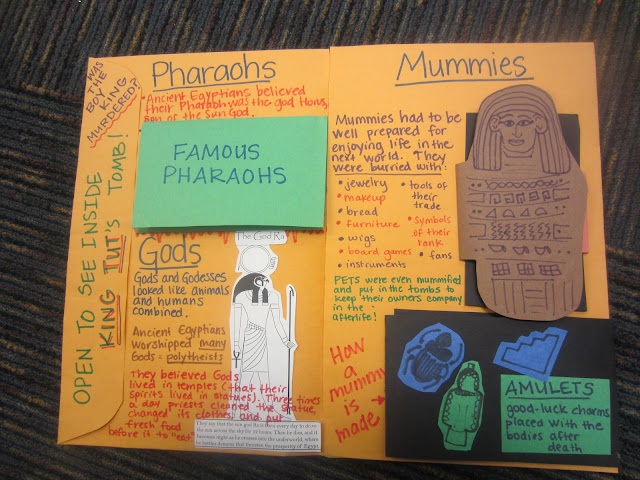 WAS
THE
BOY
KING
MURDERED?
OPEN TO SEE INSIDE
KING TUT'S TOMB!
Pharaohs
• Ancient Egyptians believed
their Pharaoh was the god Horus,
son of the Sun God.
FAMOUS
PHARAOHS
Gods
Gods and Godesses
looked like animals
and humans
combined.
Ancient Egyptians
worshipped many
Gods = polytheists
They believed Gods
lived in temples (that their
spirits lived in statues). Three times
a day priests cleaned the statue,
changed its clothes, and put
fresh food
before it to "eat"
The God Ra
They say that the sun god Ra is born every day to drive
the sun across the sky for 12 hours. Then he dies, and it
becomes night as he crosses into the underworld, where
he battles demons that threaten the prosperity of Egypt.
Mummies
Mummies had to be
well prepared for
enjoying life in the
next world. They
were burried with:
• jewelry
• makeup
• bread
• furniture
• wigs
• board games
• instruments
• tools of
their
trade
• Symbols
of their
rank
• fans
PETS were even mummified
and put in the tombs to
keep their owners company
in the
afterlife!
How
a
mummy
is
made
AMULETS
good-luck charms
placed with the
bodies after
death